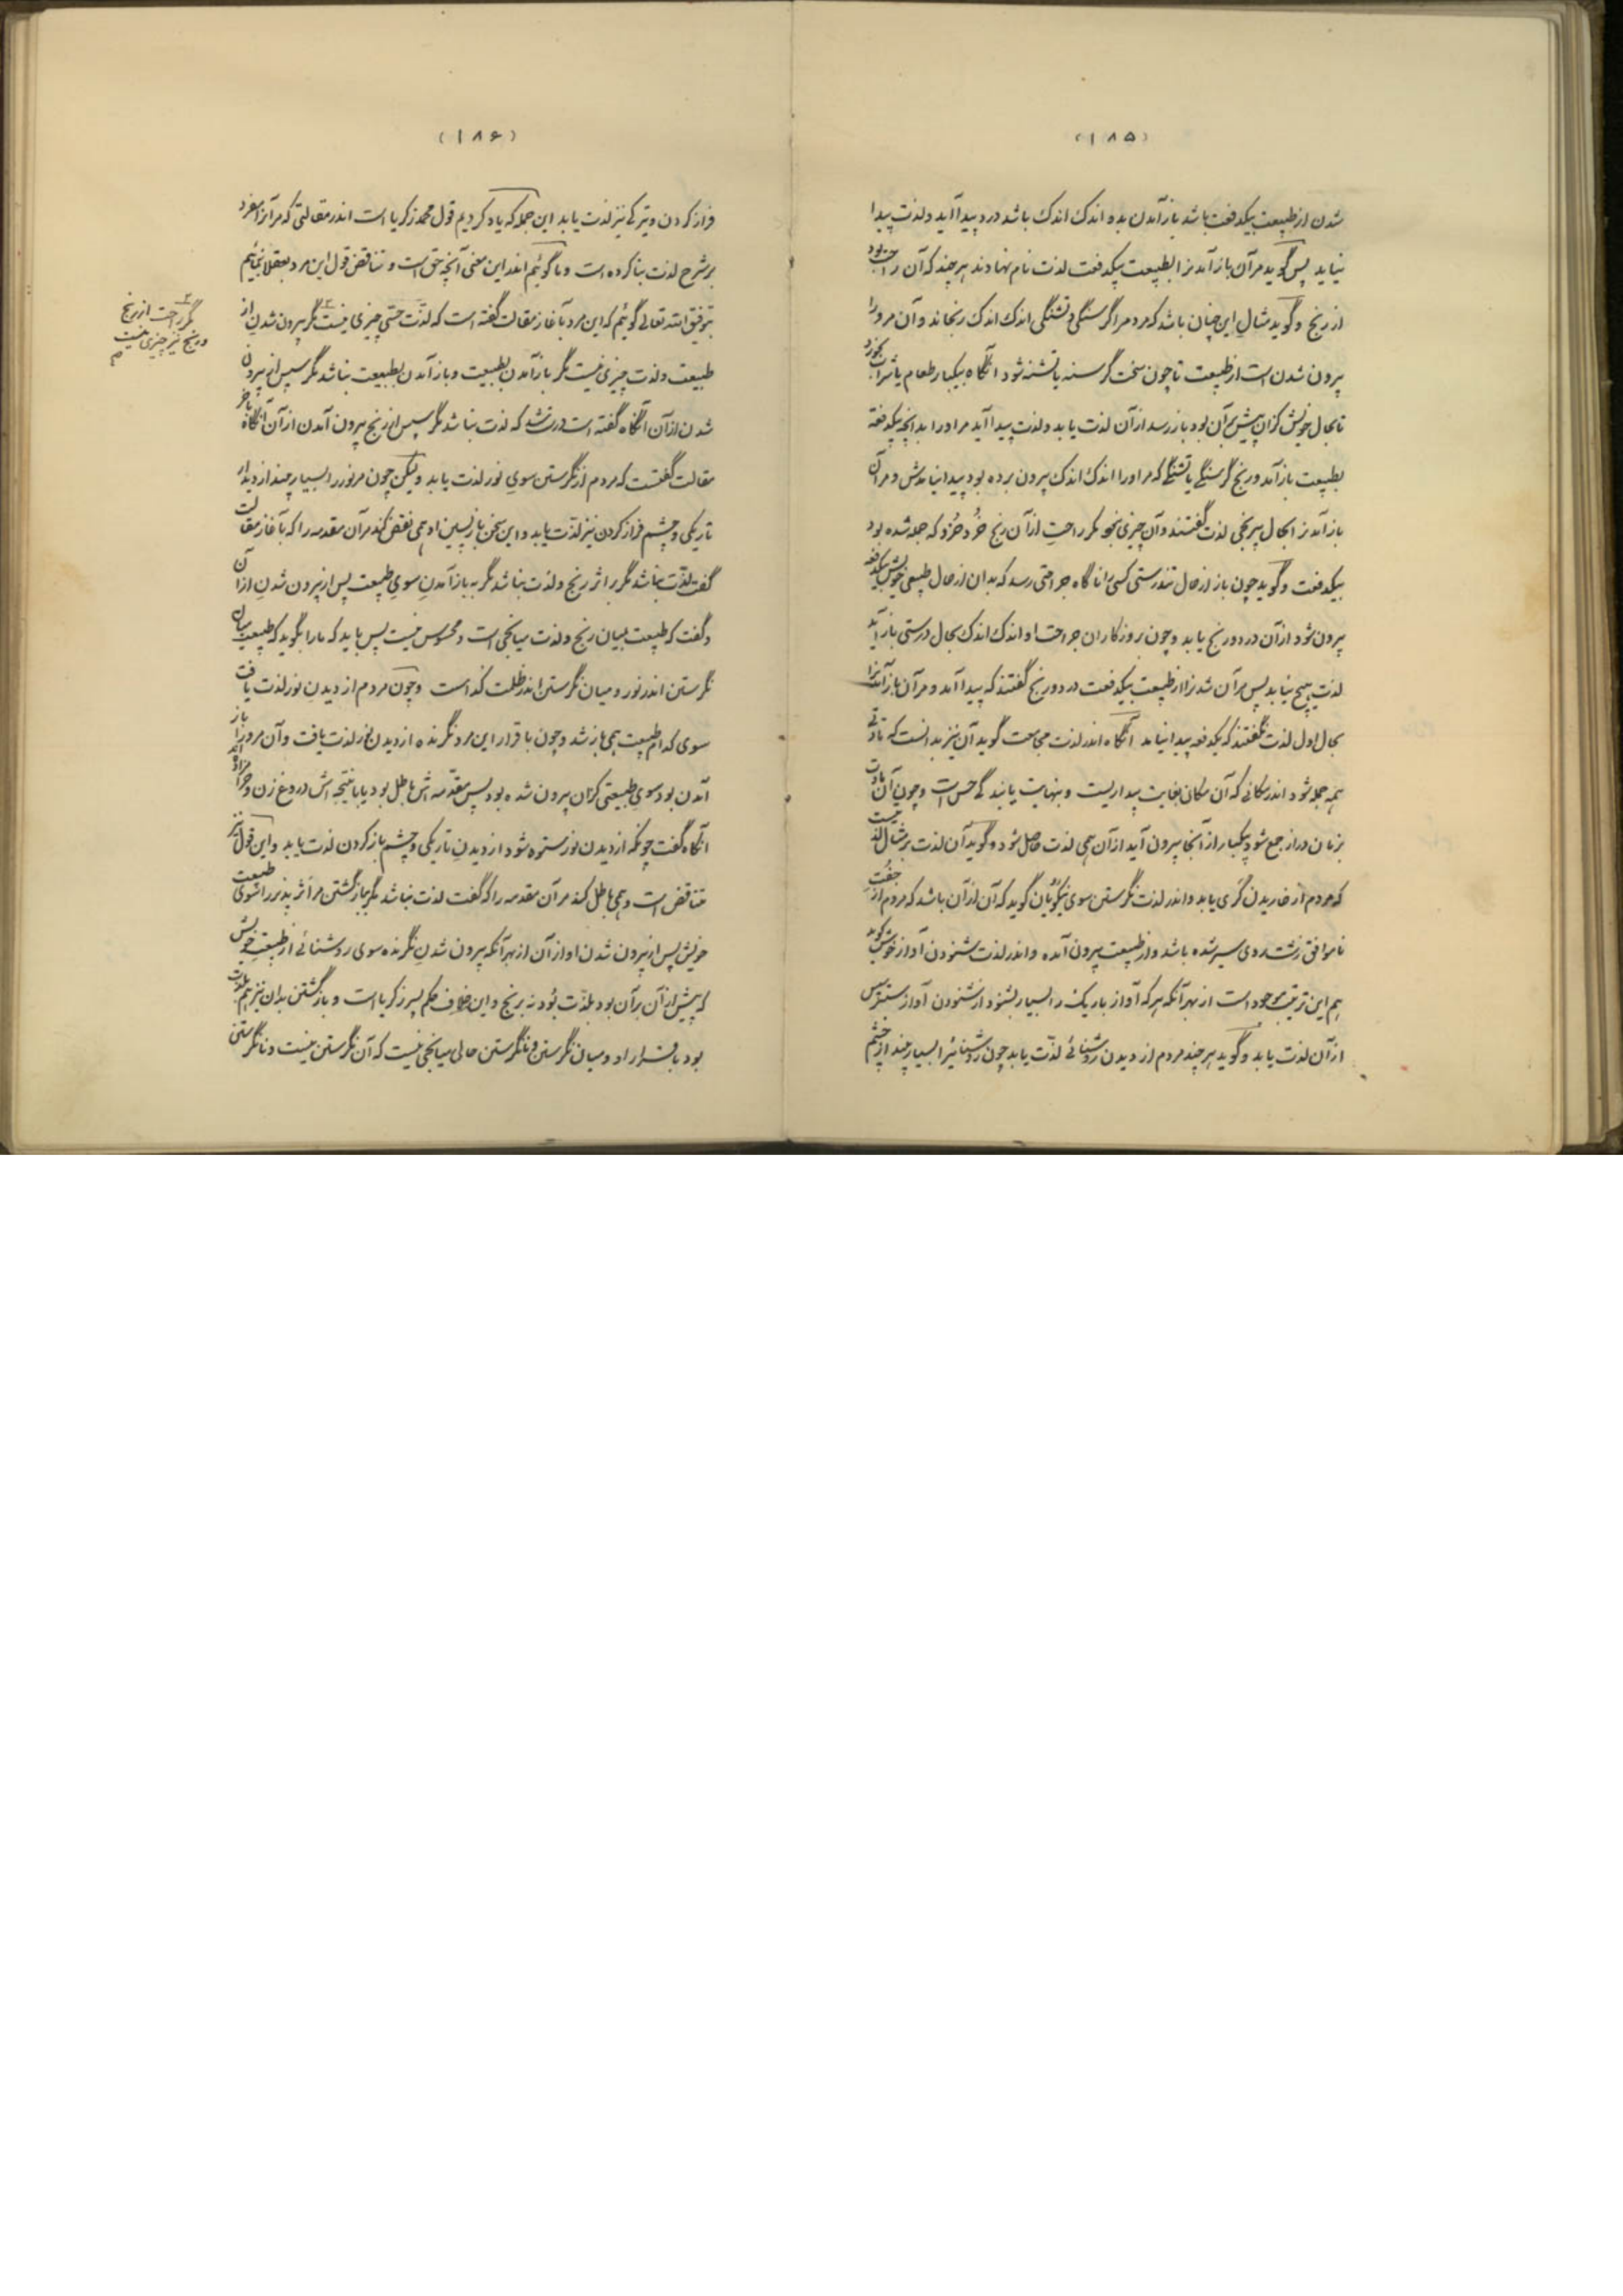 (۱۸۵)
شدن از طبیعت بیکدفعت باشد باز آمدن بدو اندک اندک باشد درد پیدا آید و لذت پیدا
نیاید پس گوید مر آن باز آمدنرا بطبیعت بیکدفعت لذت نام نهادند هر چند که آن راحت بود
از رنج و گوید مثال این چنان باشد که مردم را گرسنگی و تشنگی اندک اندک رنجاند و آن مرو را
بیرون شدن است از طبیعت تا چون سخت گرسنه یا تشنه شود آنگاه بیکبار طعام یا شراب بخورد
تا بحال خویش کزان پیش بر آن بود باز رسد از آن لذت یابد و لذت پیدا آید مر او را بدانچه بیکدفعه
بطبیعت باز آمد و رنج گرسنگی یا تشنگی که مر او را اندک اندک بیرون برده بود پیدا نیامدش و مر آن
باز آمدنرا بحال بیرنجی لذت گفتند و آن چیزی نبود مگر راحت از آن رنج خرد خرد که جمله شده بود
بیکدفعت و گوید چون باز از حال تندرستی کسی را ناگاه جراحتی رسد که بدان از حال طبیعی خویش بیکدفعه
بیرون شود از آن درد و رنج یابد و چون بروزگاران جراحت او اندک اندک بحال درستی باز آید
لذت هیچ نیابد پس مر آن شدنرا از طبیعت بیکدفعت درد و رنج گفتند که پیدا آمد و مر آن باز آمدنرا
بحال اول لذت نگفتند که یکدفعه پیدا نیامد آنگاه اندر لذت مجامعت گوید آن نیز بدانست که مادتی
همی جمله شود اندر مکانی که آن مکان بغایت بیداریست و بنهایت یابندگی حس است و چون آن مادت
بزمان دراز جمع شود بیکبار از آنجا بیرون آید از آن همی لذت حاصل شود و گوید آن لذت بر مثال لذتیست
که مردم از خاریدن گری یابد و اندر لذت نگرستن سوی نیکویان گوید که آن از آن باشد که مردم از جفت
ناموافق زشت روی سیر شده باشد و از طبیعت بیرون آمده و اندر لذت شنودن آواز خوش گوید
هم این ترتیب موجود است از بهر آنکه هر که آواز باریک را بسیار بشنود از شنودن آواز ستبر سپس
از آن لذت یابد و گوید هر چند مردم از دیدن روشنائی لذت یابد چون روشنائیرا بسیار بیند از چشم
(۱۸۶)
فراز کردن و تیرگی نیز لذت یابد این جمله که یاد کردیم قول محمد زکریا است اندر مقالتی که مر آنرا بمفرد
بر شرح لذت بنا کرده است و ما گوئیم اندر این معنی آنچه حق است و تناقض قول این مرد بعقلا بنمائیم
بتوفیق الله تعالی گوئیم که این مرد بآغاز مقالت گفته است که لذت حسی چیزی نیست مگر بیرون شدن از
طبیعت و لذت چیزی نیست مگر باز آمدن بطبیعت و باز آمدن بطبیعت نباشد مگر سپس از بیرون
شدن از آن آنگاه گفته است درست شد که لذت نباشد مگر سپس از رنج بیرون آمدن از آن آنگاه بآخر
مقالت گفتست که مردم از نگرستن سوی نور لذت یابد ولیکن چون مر نور را بسیار بیند از دیدار
تاریکی و چشم فراز کردن نیز لذت یابد و این سخن باز پسین او همی نقض کند مر آن مقدمه را که بآغاز مقالت
گفت لذت نباشد مگر بر اثر رنج و لذت نباشد مگر به باز آمدن سوی طبیعت پس از بیرون شدن از آن
و گفت که طبیعت بمیان رنج و لذت میانجی است و محسوس نیست پس باید که ما را بگوید که طبیعت میان
نگرستن اندر نور و میان نگرستن اندر ظلمت کدام است و چون مردم از دیدن نور لذت یافت
سوی کدام طبیعت همی باز شد و چون باقرار این مرد نگرنده از دیدن نور لذت یافت و آن مرو را باز
آمدن بود سوی طبیعتی کزان بیرون شده بود پس مقدمه ش باطل بود یا با نتیجه اش دروغ زن و حرامزاده اند
آنگاه گفت چونکه از دیدن نور ستوه شود از دیدن تاریکی و چشم باز کردن لذت یابد و این قول نیز
متناقض است و همی باطل کند مر آن مقدمه را که گفت لذت نباشد مگر بباز گشتن مر اثر پذیر را سوی طبیعت
خویش پس از بیرون شدن او از آن از بهر آنکه بیرون شدن نگرنده سوی روشنائی از طبیعت خویش
که پیش از آن بر آن بود بلذت بود نه برنج و این خلاف حکم پسر زکریا است و باز گشتن بدان نیز هم بلذت
بود باقرار او و میان نگرستن و نانگرستن حالی میانجی نیست که آن نگرستن نیست و نانگرستن
مگر راحت از رنج
و رنج نیز چیزی نیست